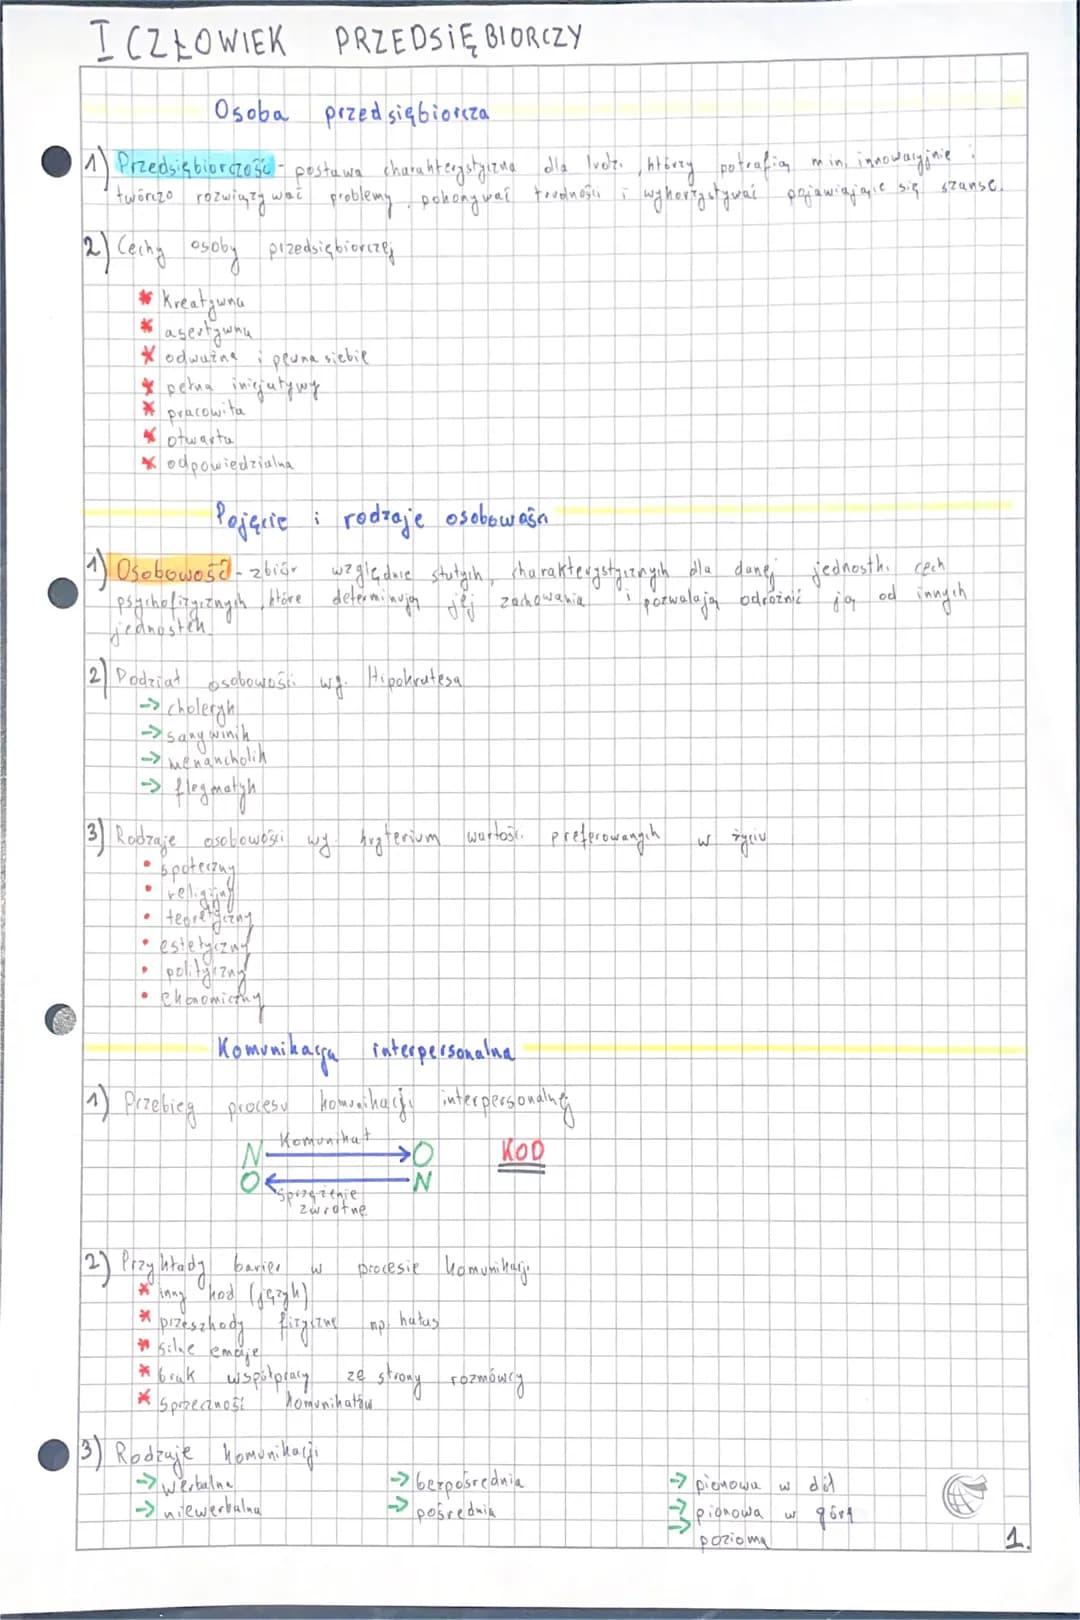 I CZŁOWIEK PRZEDSIĘBIORCZY
Osoba przedsiębiorcza
1) Przedsiębiorczość - postawa charakterystyczna dla ludzi, którzy potrafią min. innowacyjnie i
twórczo rozwiązywać problemy, pokonywać trudności i wykorzystywać pojawiające się szanse.
2) Cechy osoby przedsiębiorczej
* kreatywna
* asertywna
* odważna i pewna siebie
* pełna inicjatywy
* pracowita
* otwarta
* odpowiedzialna
Pojęcie i rodzaje osobowości
1) Osobowość - zbiór względnie stałych, charakterystycznych dla danej jednostki cech
psychofizycznych, które determinują jej zachowania i pozwalają odróżnić ją od innych
jednostek.
2) Podział osobowości wg. Hipokratesa
→ choleryk
→ sangwinik
→ menancholik
→ flegmatyk
3) Rodzaje osobowości wg. kryterium wartości preferowanych w życiu
• społeczny
• religijny
• teoretyczny
• estetyczny
• polityczny
• ekonomiczny
Komunikacja interpersonalna
1) Przebieg procesu komunikacji interpersonalnej
N Komunikat → O KOD
O ← N
Sprzężenie
zwrotne
2) Przykłady barier w procesie komunikacji
* inny kod (język)
* przeszkody fizyczne np. hałas
* silne emocje
* brak współpracy ze strony rozmówcy
* sprzeczność komunikatów
3) Rodzaje komunikacji
→ werbalna → bezpośrednia → pionowa w dół
→ niewerbalna → pośrednia → pionowa w górę
→ pozioma
1.